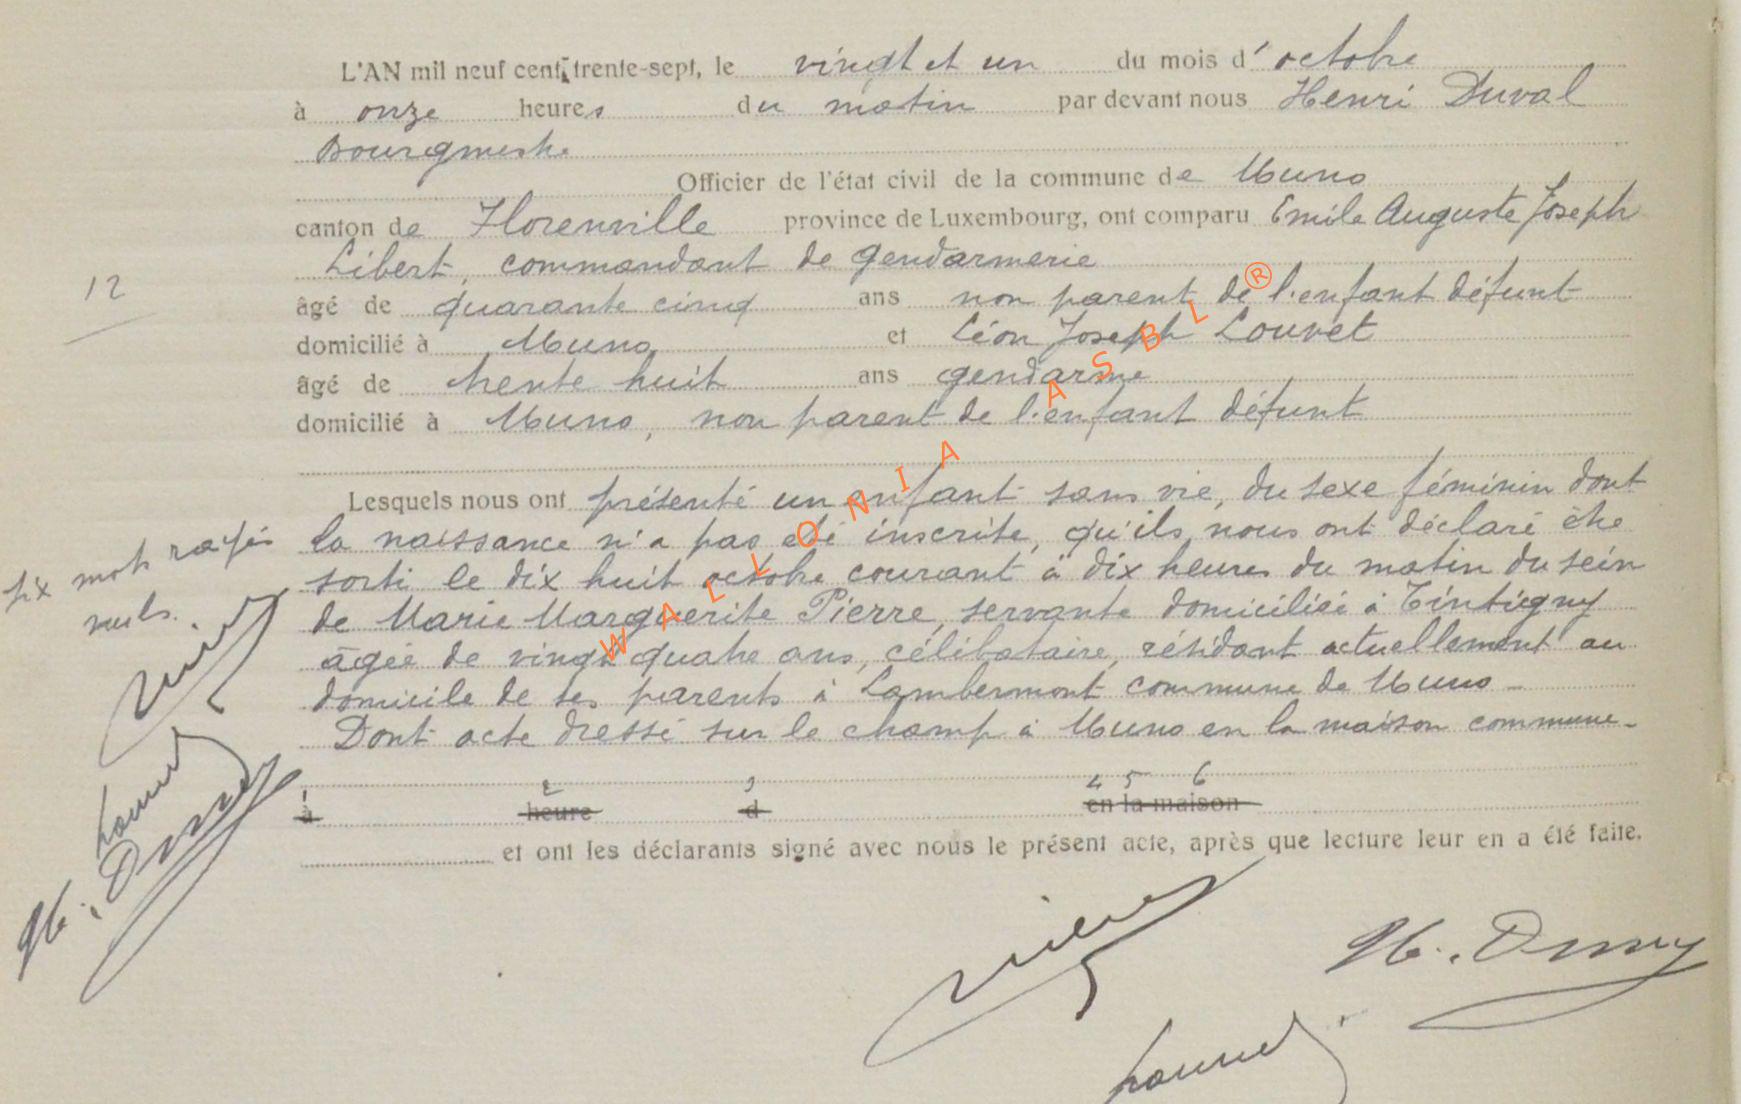 L'AN mil neuf cent trente-sept, le vingt et un du mois d'octobre
à onze heures du matin par devant nous Henri Duval
Bourgmestre
Officier de l'état civil de la commune de Muno
canton de Florenville province de Luxembourg, ont comparu Emile Auguste Joseph
Libert, commandant de gendarmerie
12
âgé de quarante cinq ans non parent de l'enfant défunt
domicilié à Muno et Léon Joseph Louvet
âgé de trente huit ans gendarme
domicilié à Muno, non parent de l'enfant défunt
Lesquels nous ont présenté un enfant sans vie, du sexe féminin dont
la naissance n'a pas été inscrite, qu'ils nous ont déclaré être
sorti le dix huit octobre courant à dix heures du matin du sein
de Marie Marguerite Pierre, servante domiciliée à Tintigny
âgée de vingt quatre ans, célibataire, résidant actuellement au
domicile de ses parents à Lambermont commune de Muno -
Dont acte dressé sur le champ à Muno en la maison commune -
six mots rayés
nuls.
1 2 3 4 5 6
à heure d en la maison
et ont les déclarants signé avec nous le présent acte, après que lecture leur en a été faite.
WALLONIA ASBL ®